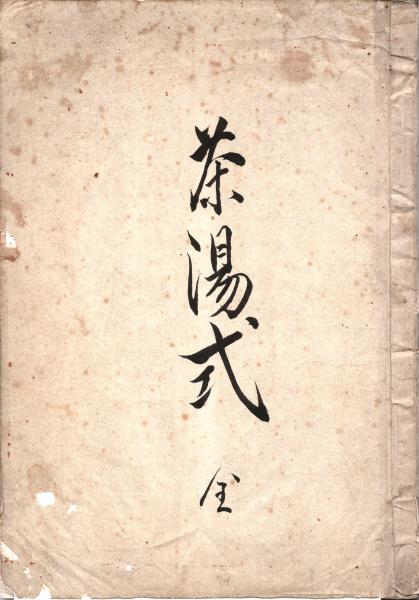 茶湯式 全